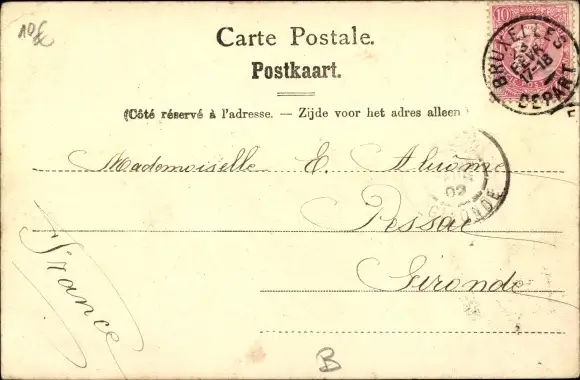 10€
10
BRUXELLES
17-18
DEPART
Carte Postale.
Postkaart.
(Côté réservé à l'adresse. — Zijde voor het adres alleen
Mademoiselle E.
02
GIRONDE
Pessac
Gironde
France
B